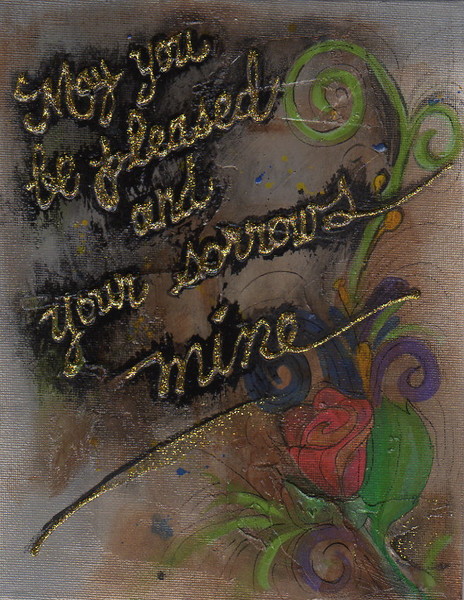 May you
be pleased
and
your sorrows
mine